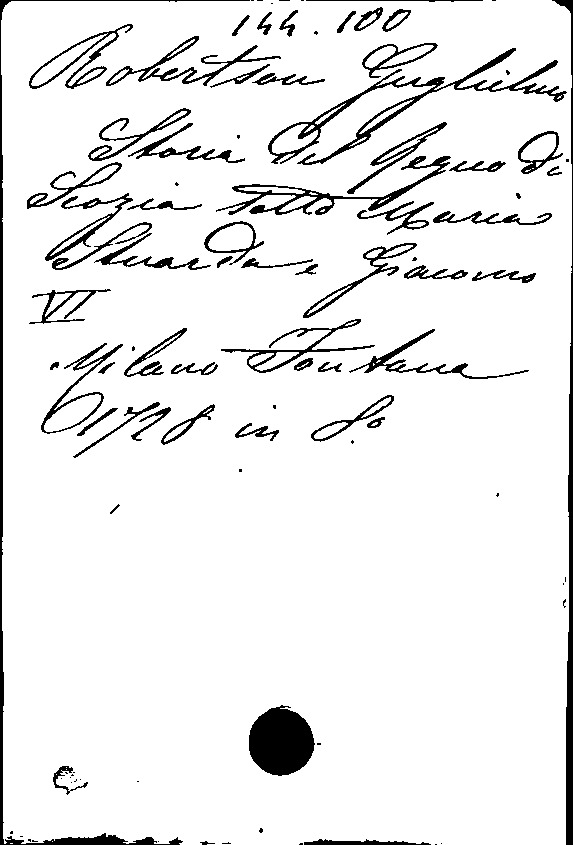 144.100
Robertson Guglielmo
Storia del Regno di
Scozia sotto Maria
Stuarda e Giacomo
VI
Milano Fontana
1728 in 8.º